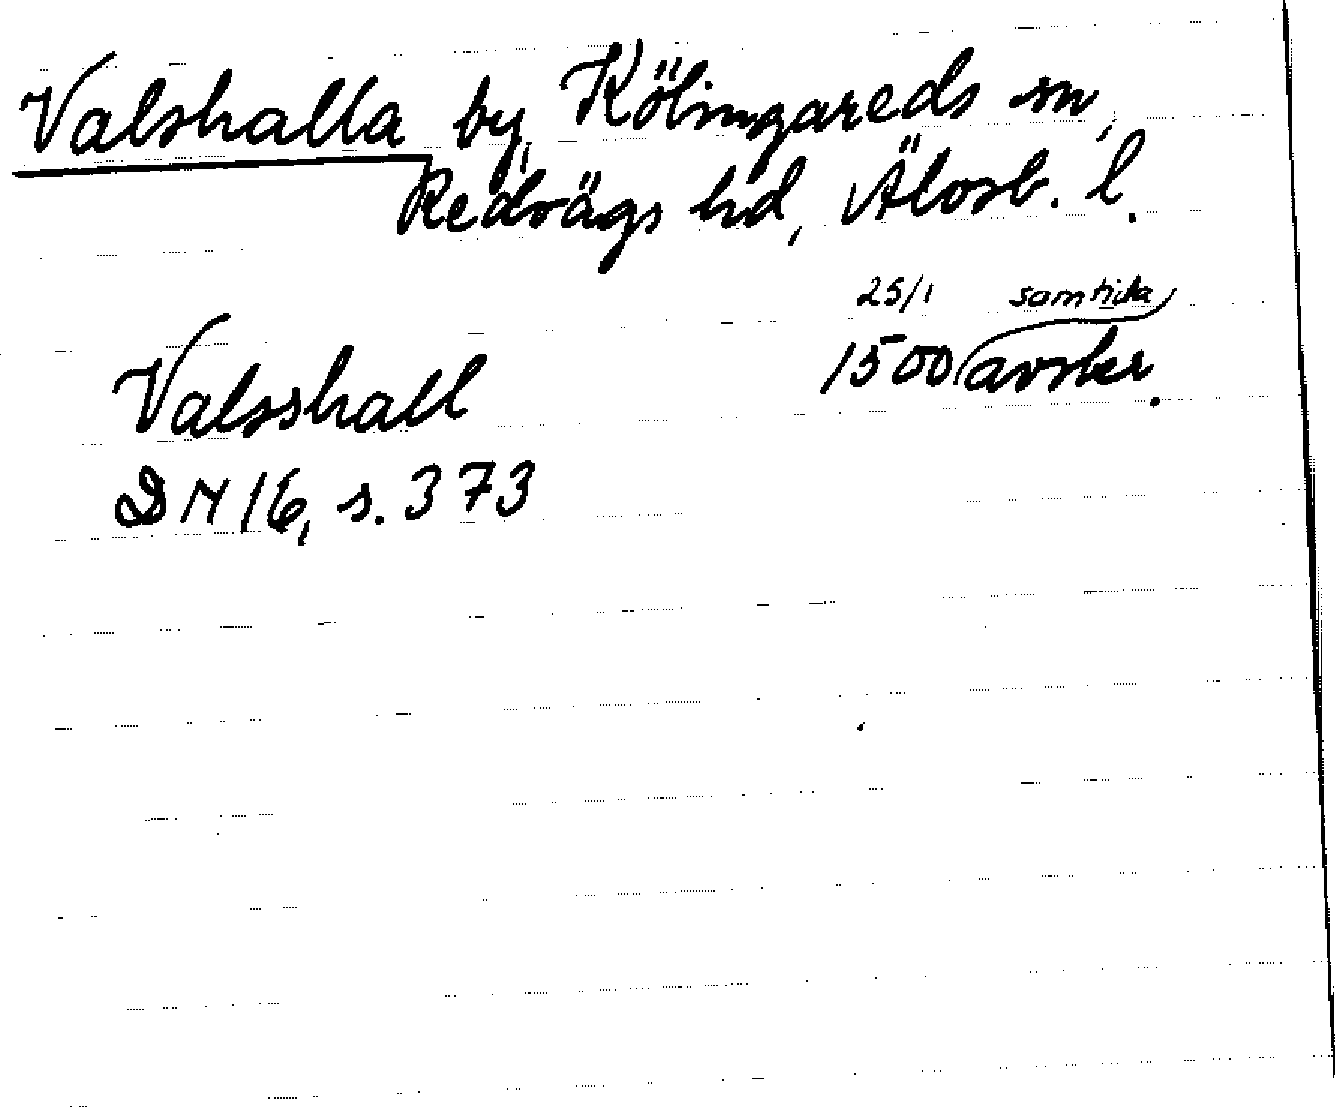 Valshalla by, Kölingareds sn,
Redvägs hd, Älvsb. l.
25/1 samtida
Valsshall 1500 avskr.
DN 16, s. 373